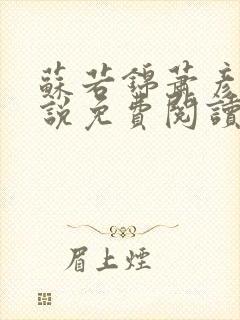 蘇若錦蕭彥
說免費閱讀
眉上煙